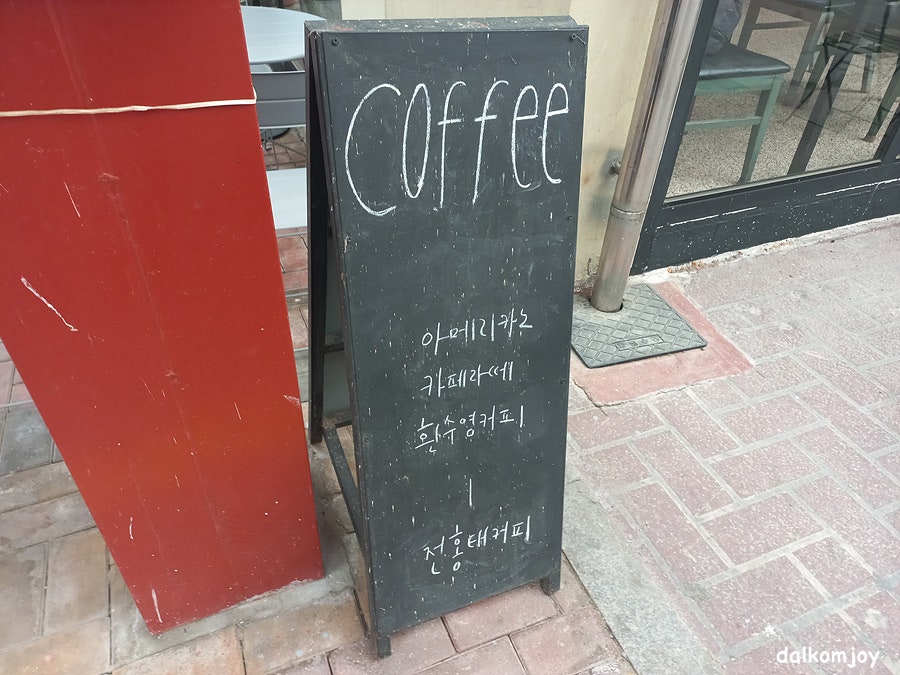 Coffee
아메리카노
카페라떼
환수영커피
|
전홍태커피
dalkomjoy